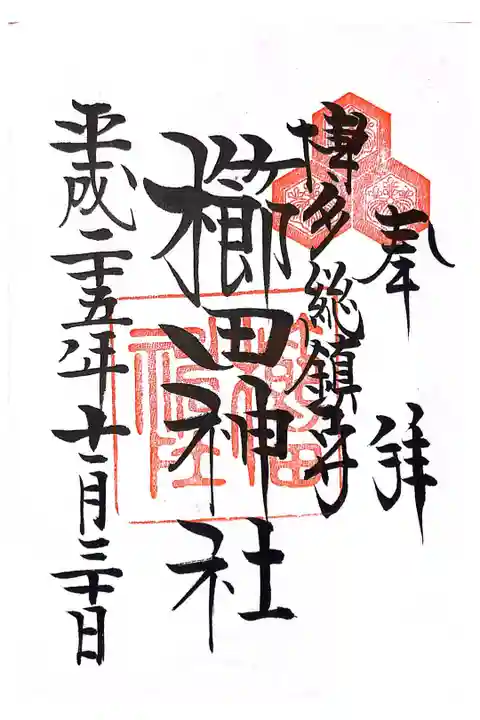 奉拝
博多総鎮守
櫛田神社
平成二十五年十二月三十日